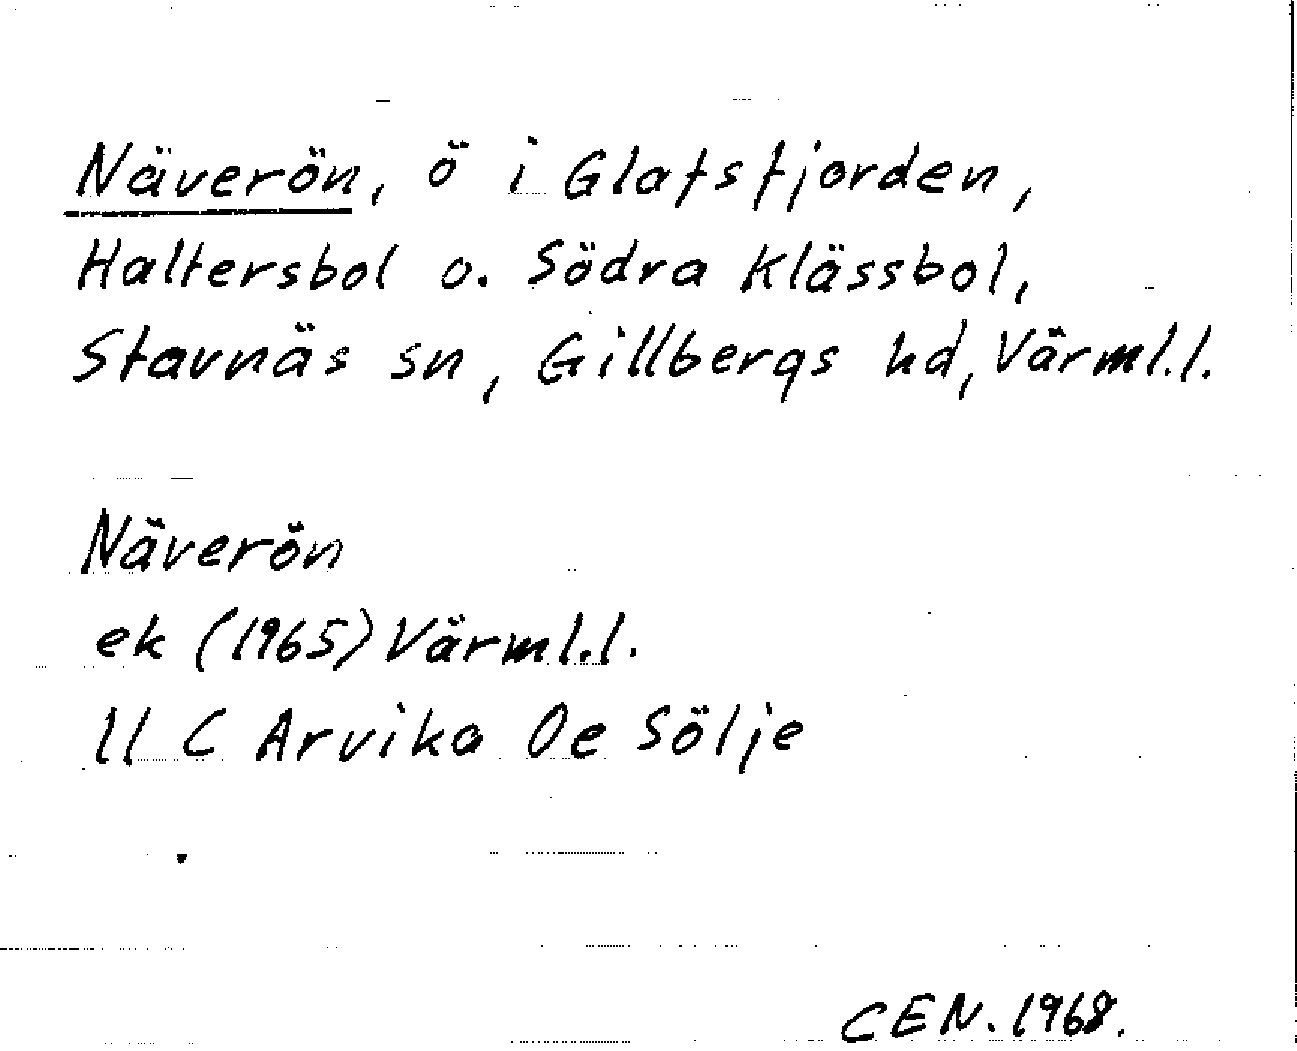 Näverön, ö i Glafsfjorden,
Haltersbol o. Södra Klässbol,
Stavnäs sn, Gillbergs hd, Värml.l.
Näverön
ek (1965) Värml.l.
11 C Arvika 0e Sölje
CEN. 1968.